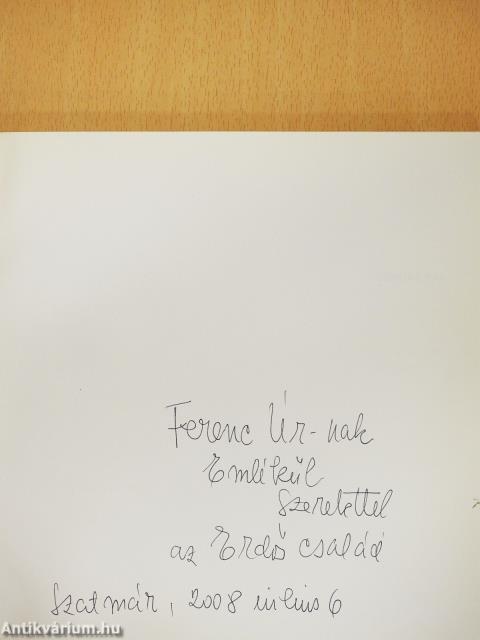 Ferenc Úr-nak
Emlékül
szeretettel
az Erdős család
Szatmár, 2008 július 6
Antikvárium.hu